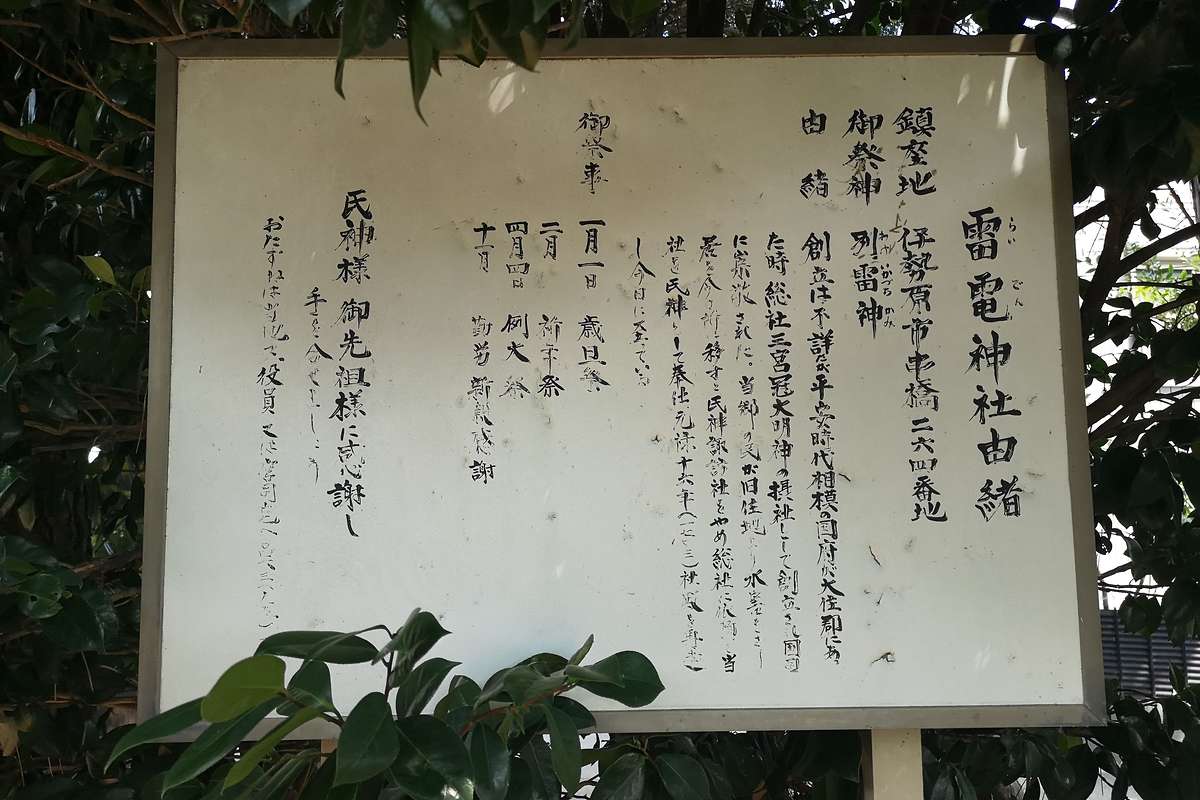 雷電神社由緒
らい でん
鎮座地 伊勢原市串橋二六四番地
御祭神 別雷神
わけ いかづち のかみ
由緒 創立は不詳なるが平安時代相模の国府が大住郡にあっ
た時総社三宮冠大明神の摂社として創立され国司
に崇敬された。当郷の民が旧住地より水害をさし
居を今の所に移すと民神諏訪社をやめ総社に依頼し当
社を民神として奉仕元禄十六年(一七〇三)社殿を再建
し今日に至っている
御祭事 一月一日 歳旦祭
二月 祈年祭
四月四日 例大祭
十一月 勤労 新穀感謝
民神様御先祖様に感謝し
手を合せましょう
おたずねは当地で、役員又は宮司宅へ